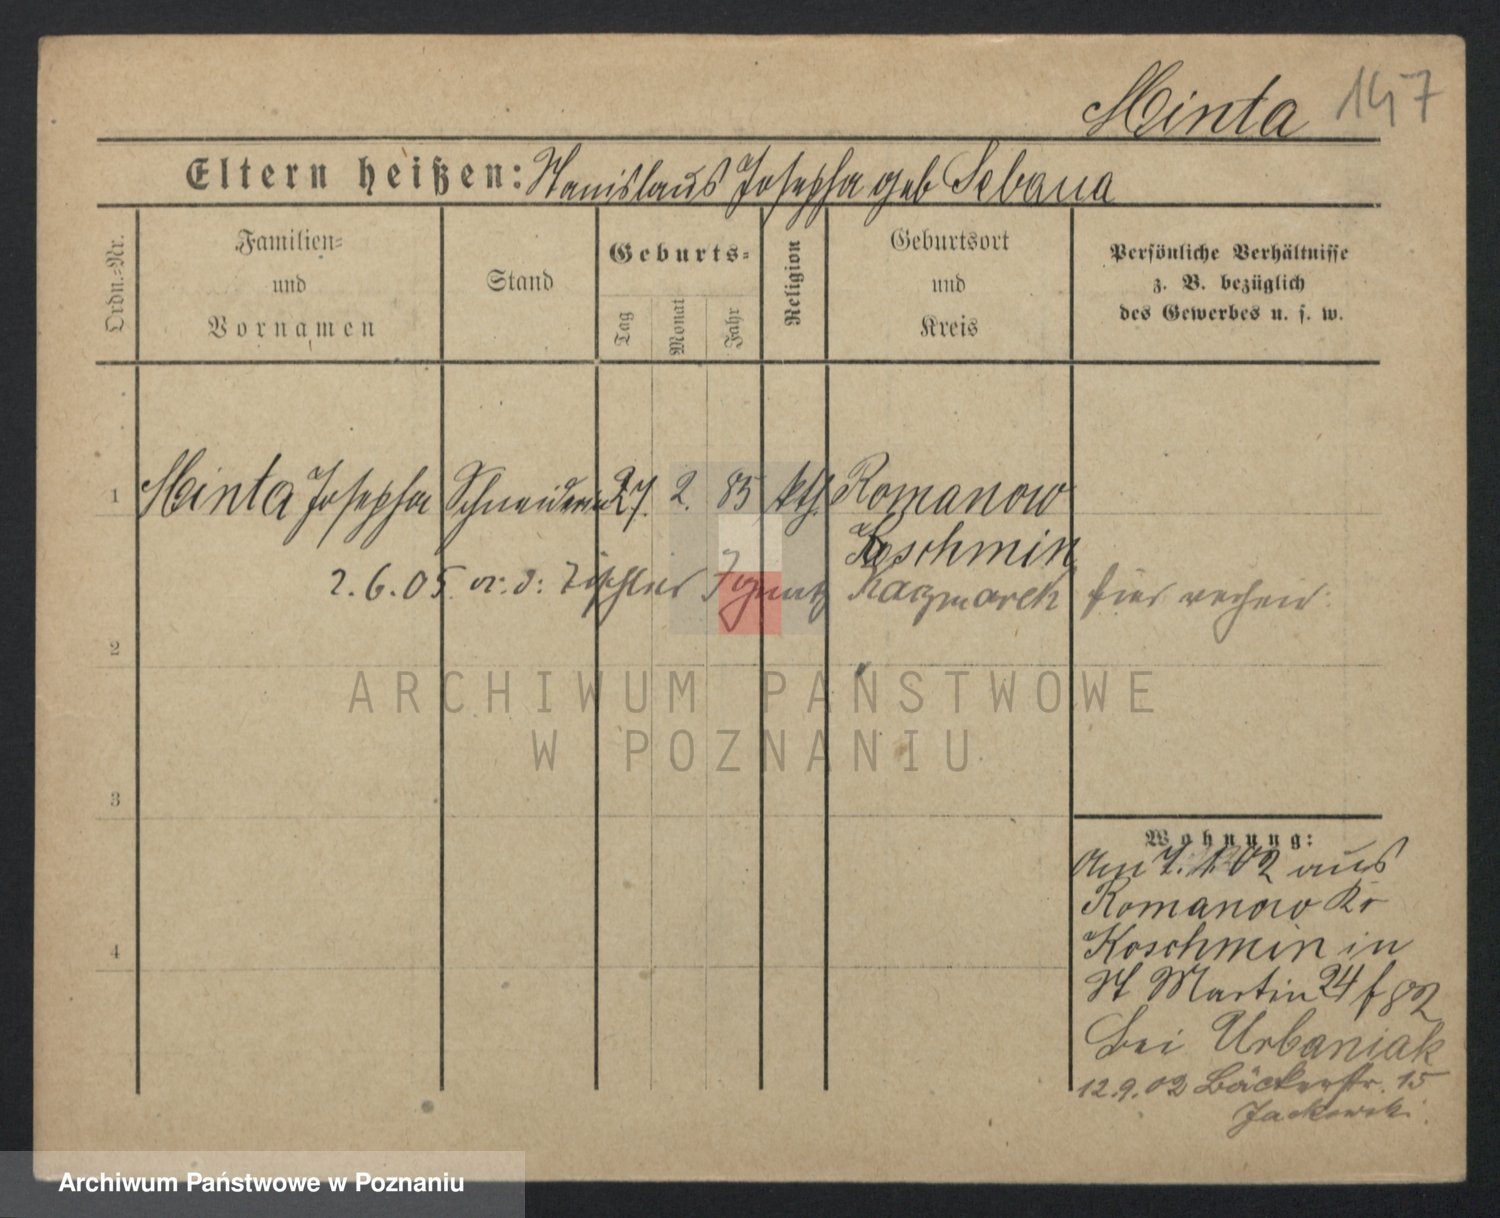 Minta 147
Eltern heißen: Stanislaus Josepha geb Sebana
Ordn.-Nr.
Familien- und Vornamen
Stand
Geburts-
Tag Monat Jahr
Religion
Geburtsort und Kreis
Persönliche Verhältnisse
z. B. bezüglich
des Gewerbes u. s. w.
1 Minta Josepha Schneiderin 27. 2. 85 kth. Romanow
Koschmin
2.6.05 Tischler Ignatz Kaczmarek hier
2
ARCHIWUM PAŃSTWOWE
W POZNANIU
3
Wohnung:
Am 7. 1. 02 aus
Romanow Kr
4
Koschmin in
St Martin 24
bei Urbaniak
12.9.02 Bäckerstr. 15
Jackowski.
Archiwum Państwowe w Poznaniu